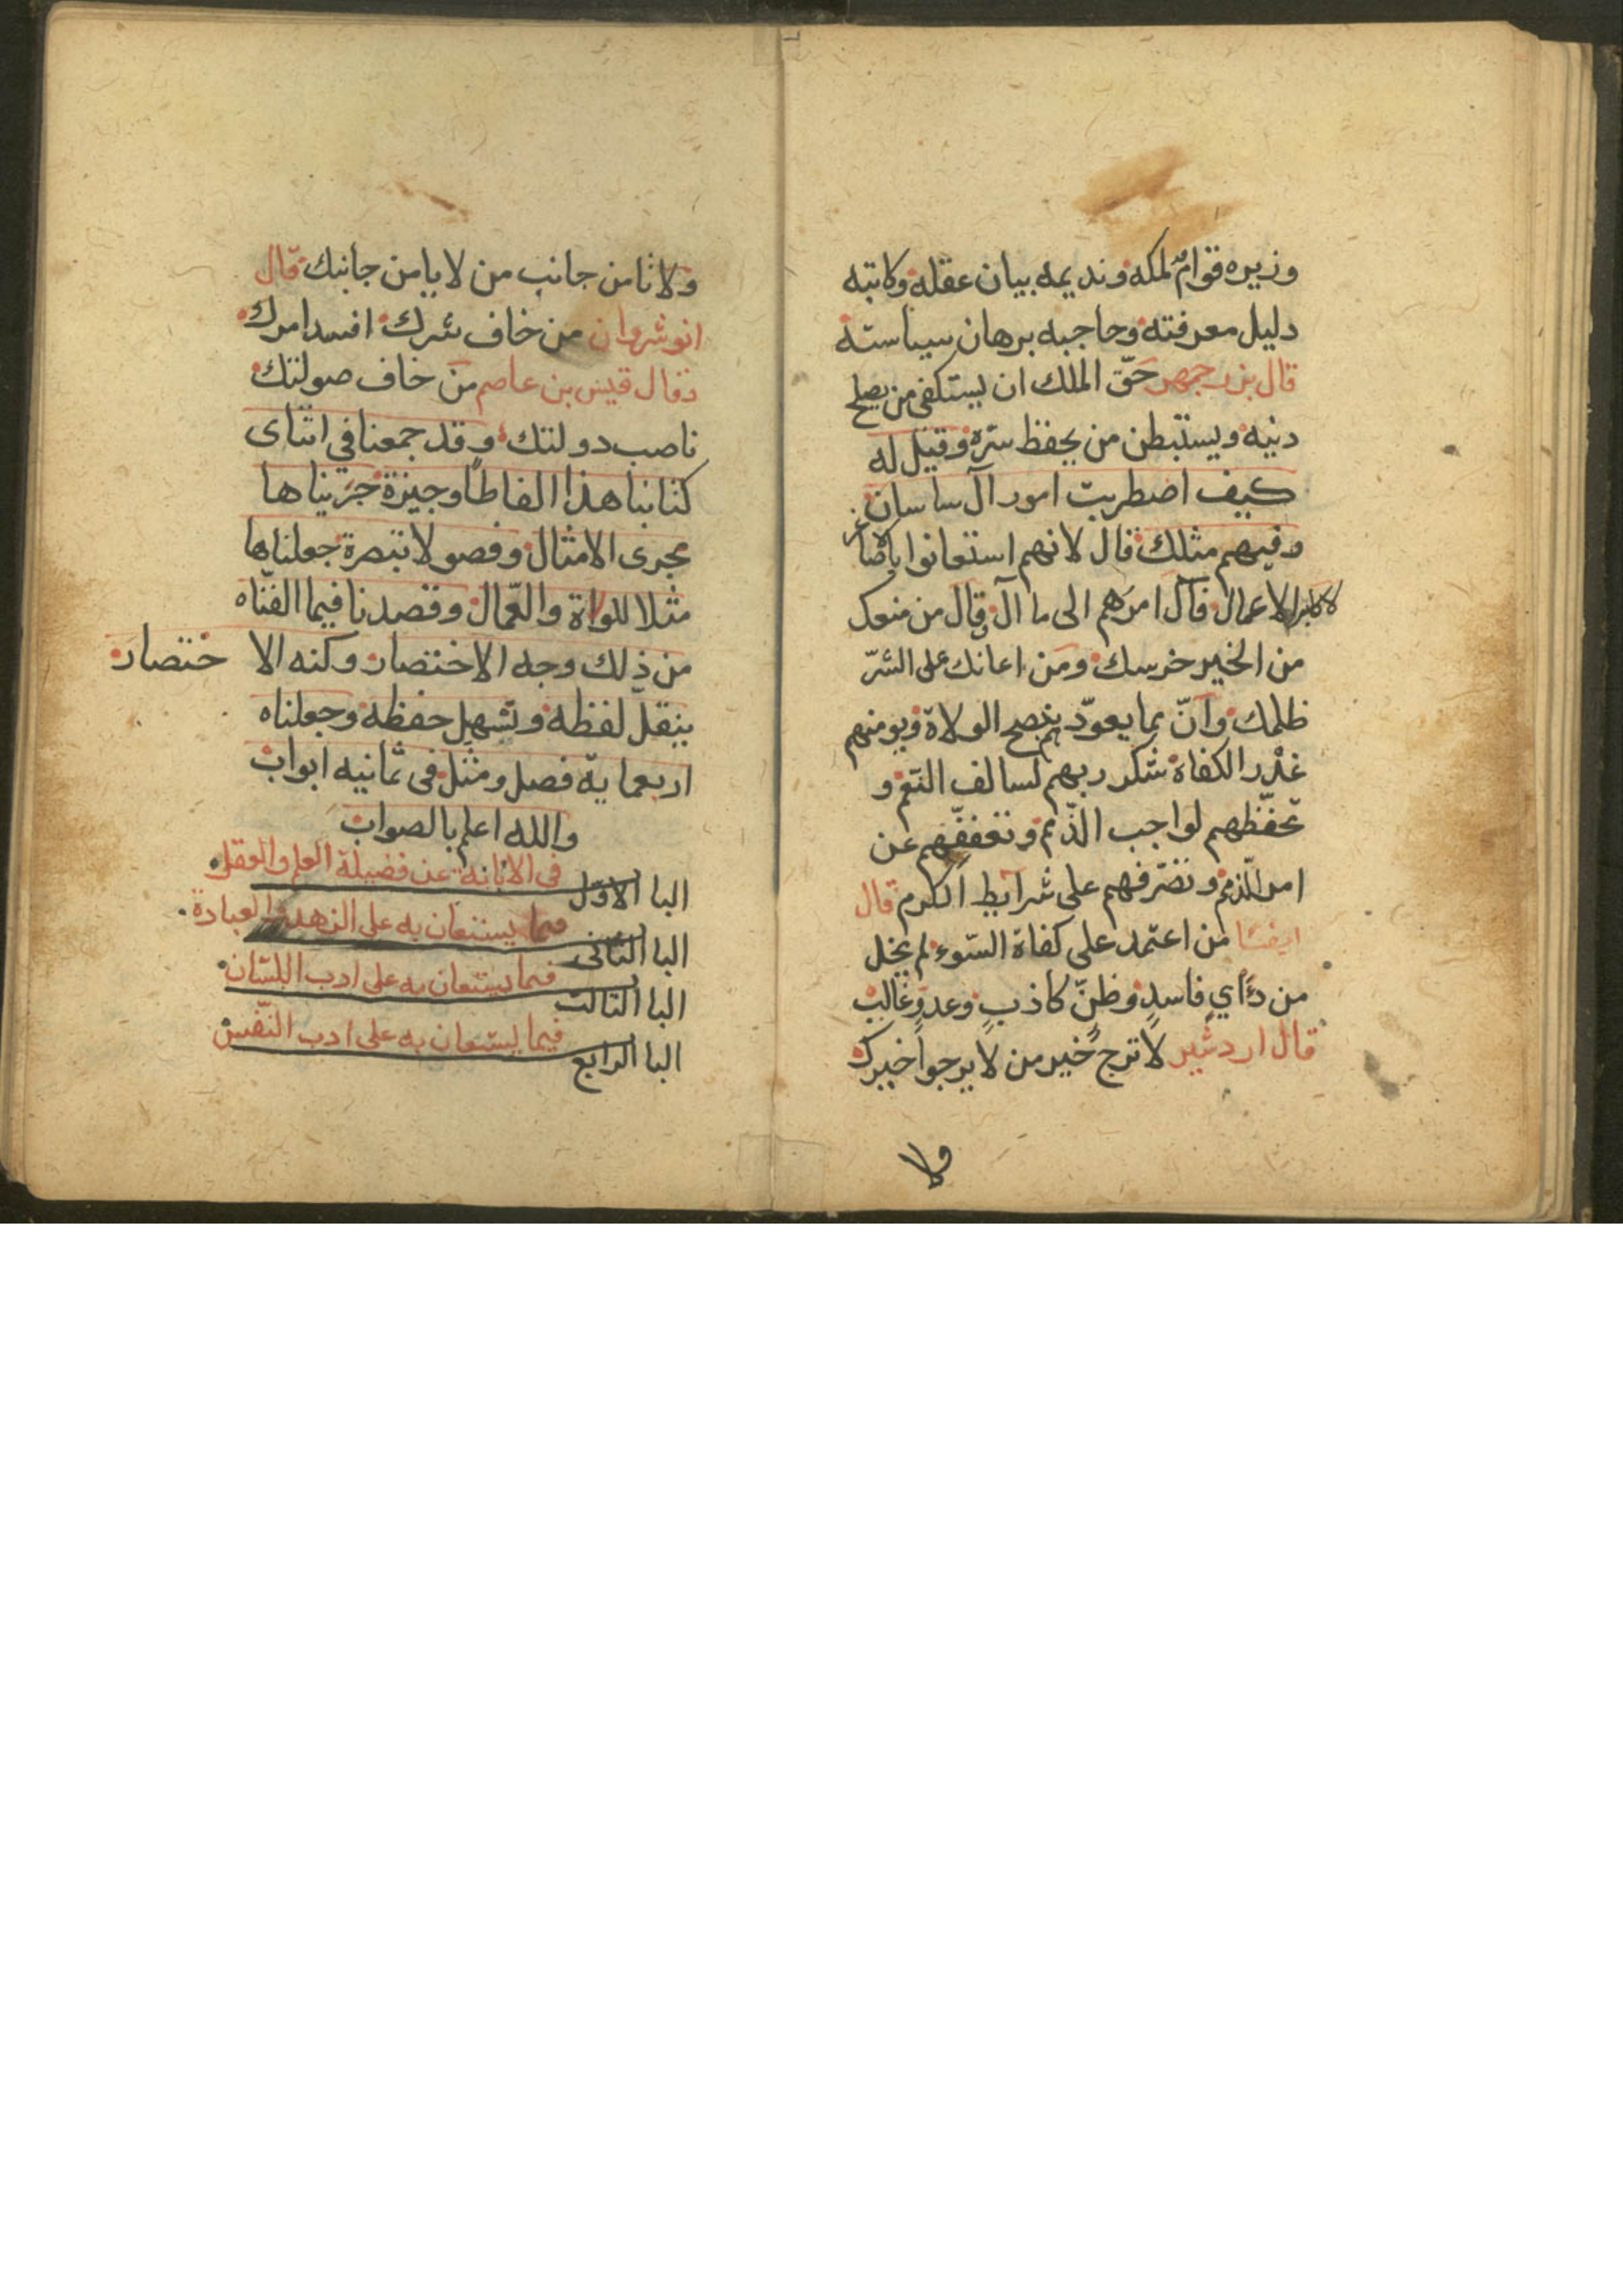 وزيره قوام ملكه ونديمه بيان عقله وكاتبه
دليل معرفته وحاجبه برهان سياسته
قال بزرجمهر حقّ الملك ان يستكفي من يصلح
دنيه ويستبطن من يحفظ سرّه وقيل له
كيف اضطربت امور آل ساسان
وفيهم مثلك قال لانهم استعانوا باصاغر
لاكابر الاعمال فآل امرهم الى ما آل قال من منعك
من الخير خرسك ومن اعانك على الشرّ
ظلمك وانّ بما يعوّد بنصح الولاة ويومنهم
غدر الكفاة شكر ربهم لسالف النّعم و
تحفّظهم لواجب الذّمم وتعففّهم عن
اموال الذمم وتصّرفهم على شرايط الكرم قال
ايضًا من اعتمد على كفاة السّوء لم يخل
من رَأيٍ فاسدٍ وظنٍّ كاذبٍ وعدوٍّ غالب
قال اردشير لا ترج خير من لا يرجوا خيرك
ولا
ولا تامن جانب من لا يامن جانبك قال
انوشروان من خاف شرك افسد امرك
وقال قيس بن عاصم من خاف صولتك
ناصب دولتك وقد جمعنا في اثناى
كتابنا هذا الفاظًا وجيزة جريناها
مجرى الامثال وفصولا تبصرة جعلناها
مثلا للولاة والعّمال وقصدنا فيما الفّناه
من ذلك وجه الاختصار وكنه الا ختصار
ينقل لفظه وتسهل حفظه وجعلناه
اربعماية فصل ومثل في ثمانيه ابواب
والله اعلم بالصواب
البا الاوّل في الابانة عن فضيلة العلم والعقل
البا الثّانى فيما يستعان به على الزهد والعبادة
البا الثالث فيما يستعان به على ادب اللسّان
البا الرابع فيما يستعان به على ادب النّفس